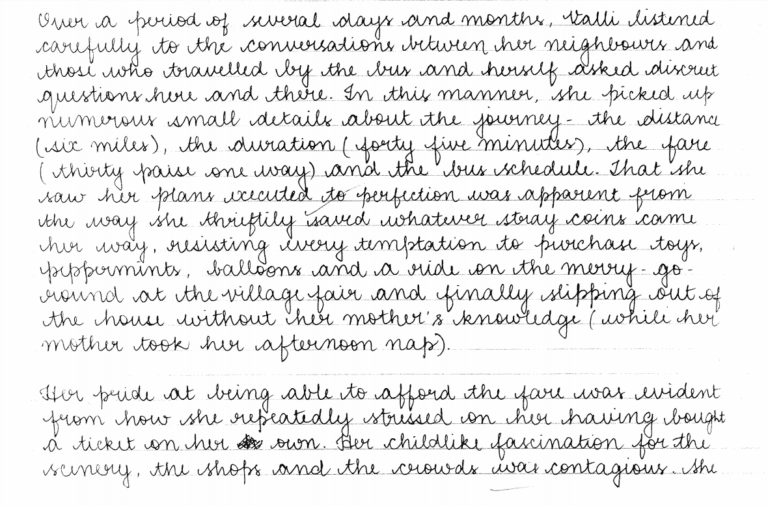 Over a period of several days and months, Valli listened
carefully to the conversations between her neighbours and
those who travelled by the bus and herself asked discreet
questions here and there. In this manner, she picked up
numerous small details about the journey - the distance
(six miles), the duration (forty five minutes), the fare
(thirty paise one way) and the bus schedule. That she
saw her plans executed to perfection was apparent from
the way she thriftily saved whatever stray coins came
her way, resisting every temptation to purchase toys,
peppermints, balloons and a ride on the merry-go-
round at the village fair and finally slipping out of
the house without her mother's knowledge (while her
mother took her afternoon nap).

Her pride at being able to afford the fare was evident
from how she repeatedly stressed on her having bought
a ticket on her own. Her childlike fascination for the
scenery, the shops and the crowds was contagious. She